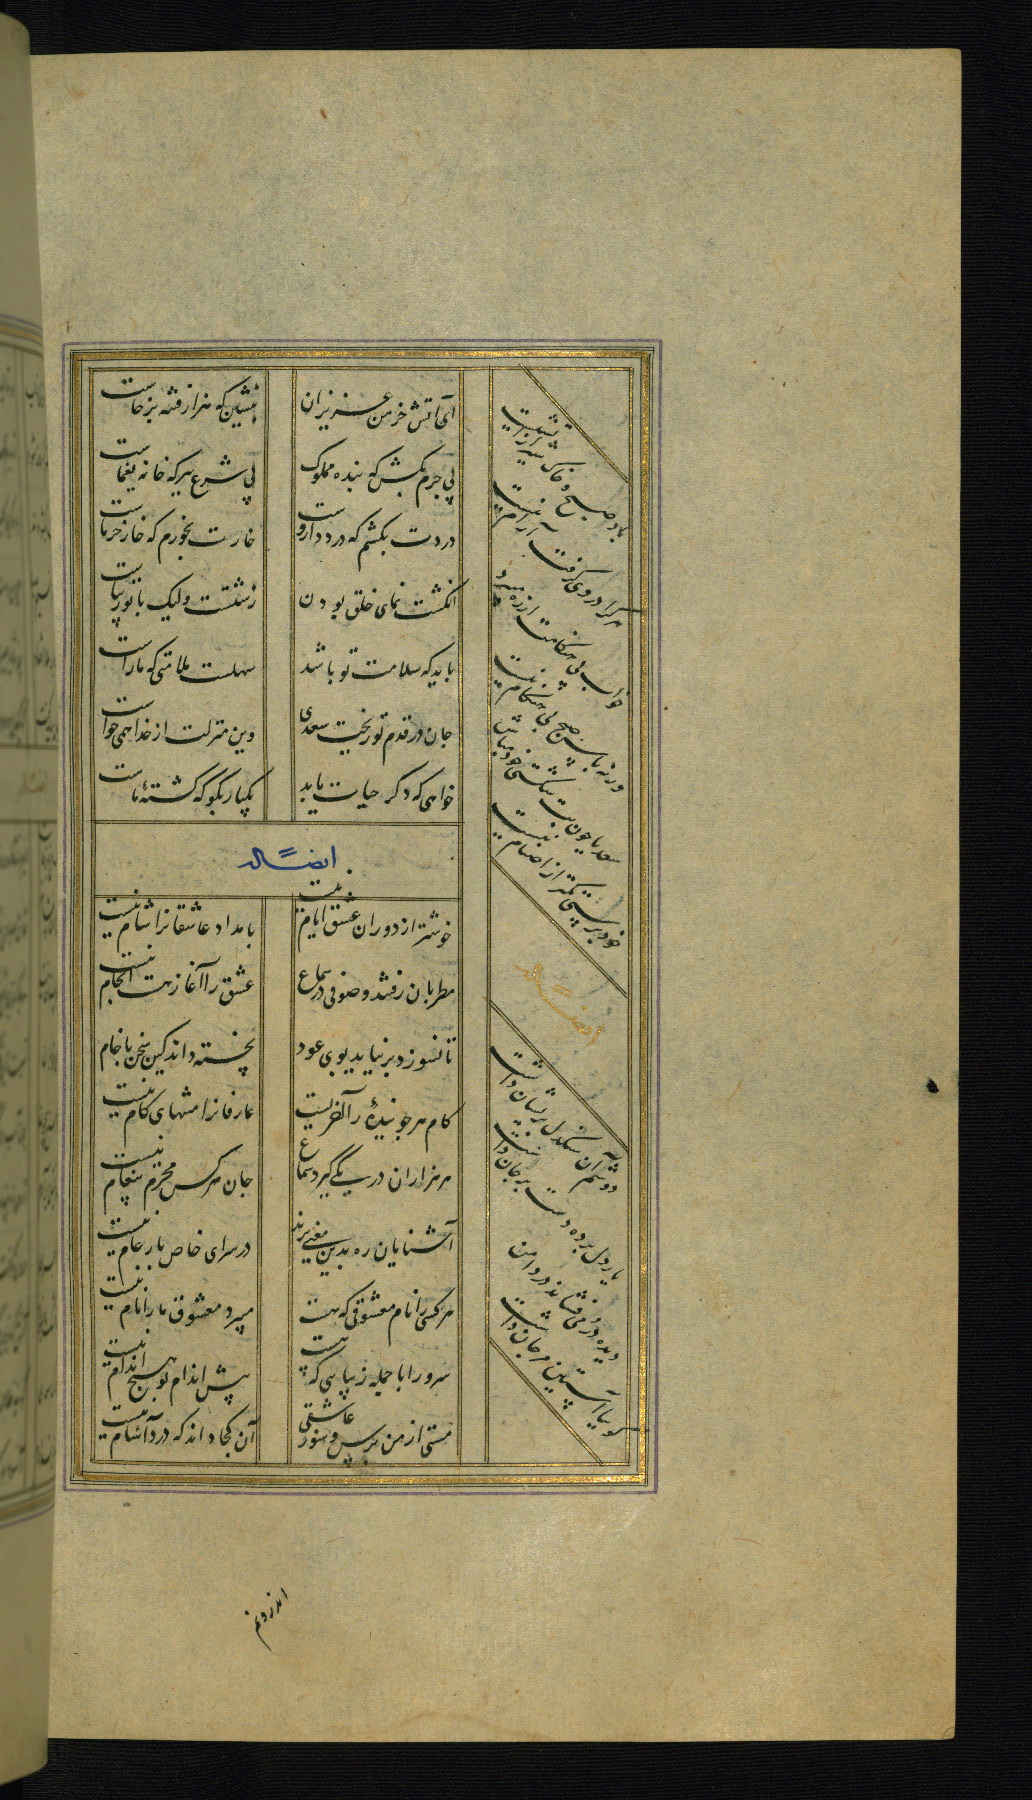 ای آتش خرمن عزیزان
بنشین که هزار فتنه برخاست
بی جرم بکش که بنده مملوک
بی شرع ببر که خانه یغماست
دردت بکشم که درد داروست
خارت بخورم که خار خرماست
انکشت نمای خلق بودن
زشتست ولیک با تو زیباست
باید که سلامت تو باشد
سهلست ملامتی که ماراست
جان در قدم تو ریخت سعدی
وین منزلت از خدا همی خواست
خواهی که دکر حیات یابد
یکبار بگو که کشتهٔ ماست
ایضا له
خوشتر از دوران عشق ایام نیست
بامداد عاشقانرا شام نیست
مطربان رفتند و صوفی در سماع
عشق را آغاز هست انجام نیست
تا نسوزد بر نیاید بوی عود
پخته داند کین سخن با خام
کام هر جوینده را آخریست
عارفانرا منتهای کام نیست
از هزاران در یکی کیرد سماع
جان هر کس محرم پیغام نیست
آشنایان ره بدین معنی برند
در سرای خاص بار عام نیست
هر کسی را نام معشوقی که هست
میبرد معشوق ما را نام نیست
سرو را با جمله زیبایی که هست
پیش اندام تو هیچ اندام نیست
مستی از من پرس و شور عاشقی
آن کجا داند که درد آشام نیست
باد صبح و خاک شیراز آتشیست
هر کرا در وی کرفت آرام نیست
خواب بی هنکامت از ره میبرد
ورنه بانک صبح بی هنکام نیست
سعدیا چون بت شکستی خود مباش
خود پرستی کمتر از اصنام نیست
ایضا له
دوش آن سنکدل پریشان داشت
یار دل برده دست بر جان داشت
دیده در می فشاند در دامن
کوییا آستین مرجان داشت
اندرونم